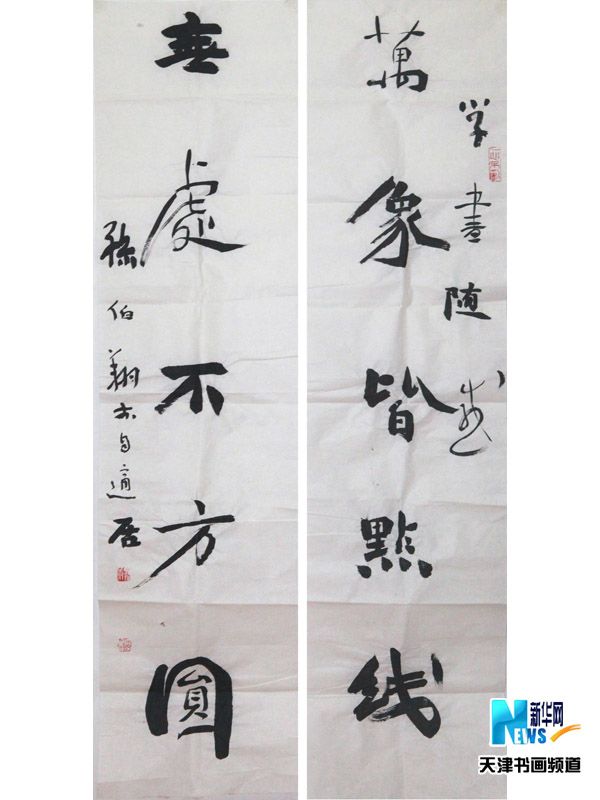 学書随感
萬象皆點线
無處不方圓
孫伯翔自適居
新华网
NEWS
天津书画频道